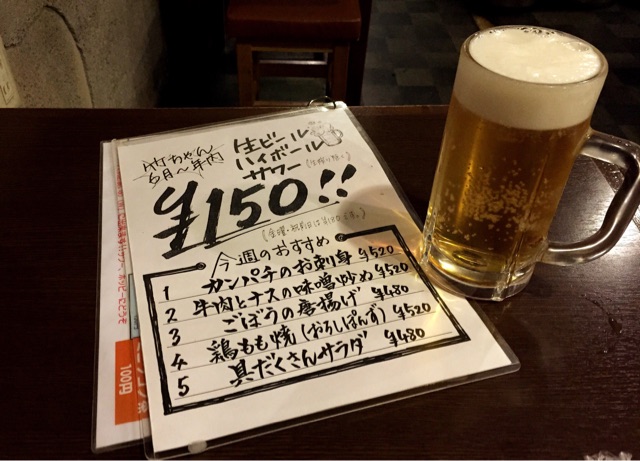 竹ちゃん
6月〜年内
生ビール
ハイボール
サワー
¥150!!
今週のおすすめ
1 カンパチのお刺身 ¥520
2 牛肉とナスの味噌炒め ¥520
3 ごぼうの唐揚げ ¥480
4 鶏もも焼(おろしぽんず) ¥520
5 具だくさんサラダ ¥480
100円